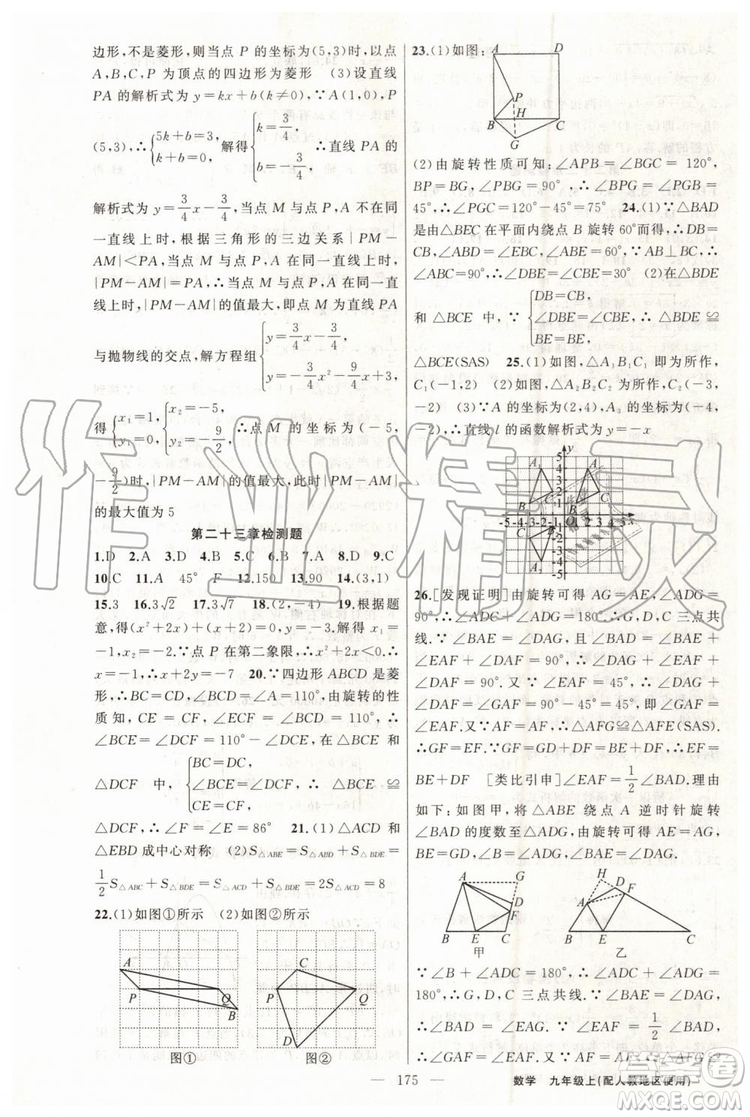 边形,不是菱形,则当点 P 的坐标为(5,3)时,以点
A,B,C,P 为顶点的四边形为菱形 (3)设直线
PA 的解析式为 y=kx+b(k≠0),∵A(1,0),P
(5,3),∴{5k+b=3, k+b=0, 解得{k=3/4, b=-3/4, ∴直线 PA 的
解析式为 y=3/4x-3/4,当点 M 与点 P,A 不在同一
直线上时,根据三角形的三边关系|PM-
AM|<PA,当点 M 与点 P,A 在同一直
线上时,|PM-AM|=PA,∴当点 M 与点 P,A 在同一直
线上时,|PM-AM|的值最大,即点 M 为直线 PA
与抛物线的交点,解方程组{y=3/4x-3/4, y=-3/4x²-9/4x+3,
得{x₁=1, y₁=0, {x₂=-5, y₂=-9/2, ∴点 M 的坐标为(-5,
-9/2)时,|PM-AM|的值最大,此时|PM-AM|
的最大值为 5
第二十三章检测题
1.D 2.A 3.A 4.C 5.B 6.B 7.D 8.D 9.C
10.C 11.A 45° F 12.150 13.90 14.(3,1)
15.3 16.3√2 17.3√7 18.(2,-4) 19.根据题
意,得(x²+2x)+(x+2)=0,y=-3.解得 x₁=
-1,x₂=-2.∵点 P 在第二象限,∴x²+2x<0,
∴x=-1,∴x+2y=-7 20.∵四边形 ABCD 是菱
形,∴BC=CD,∠BCD=∠A=110°,由旋转的性
质知,CE=CF,∠ECF=∠BCD=110°,∴
∠BCE=∠DCF=110°-∠DCE,在△BCE 和
△DCF 中,{BC=DC, ∠BCE=∠DCF, CE=CF, ∴△BCE≌
△DCF,∴∠F=∠E=86° 21.(1)△ACD 和
△EBD 成中心对称 (2)S△ABE=S△ABC+S△BCE=
1/2S△ABC=S△ABD,S△ABE=S△ABC=2S△ABD=8
22.(1)如图①所示 (2)如图②所示
A
P
Q
B
C
P
Q
D
图① 图②
23.(1)如图:
A D
P
B H C
G
(2)由旋转性质可知:∠APB=∠BGC=120°,
BP=BG,∠PBG=90°,∴∠BPG=∠BGP=
45°,∴∠PGC=120°-45°=75° 24.(1)∵△BAD
是由△BEC 在平面内绕点 B 旋转 60°而得,∴DB=
CB,∠ABD=∠EBC,∠ABE=60°,∵AB⊥BC,∴
∠ABC=90°,∴∠DBE=∠CBE=30° (2)在△BDE
和△BCE 中,∵{DB=CB, ∠DBE=∠CBE, BE=BE, ∴△BDE≌
△BCE(SAS) 25.(1)如图,△A₁B₁C₁ 即为所作,
C₁(-1,2) (2)如图,△A₂B₂C₂ 即为所作,C₂(-3,
-2) (3)∵A 的坐标为(2,4),A₃ 的坐标为(-4,
-2),∴直线 l 的函数解析式为 y=-x
26.[发现证明]由旋转可得 AG=AE,∠ADG=
∠B=90°.∴∠ADG+∠ADF=180°.∴G,D,F 三点共
线.∵∠BAE=∠DAG,∠EAF=45°,∴∠BAE+
∠DAF=90°-∠EAF=45°,∴∠DAG+∠DAF=
45°.∴∠GAF=90°-45°=45°.∴∠GAF=
∠EAF=90°.又∵AF=AF,∴△AFG≌△AFE(SAS).
∴GF=EF.∵GF=DG+DF=BE+DF.∴EF=
BE+DF [类比引申]∠EAF=1/2∠BAD.理由
如下:如图甲,将△ABE 绕点 A 逆时针旋转
∠BAD 的度数至△ADG,由旋转可得 AE=AG,
BE=DG,∠B=∠ADG,∠BAE=∠DAG.
A G
D
F
B E C
甲
H A D
F
B E C
乙
∵∠B+∠ADF=180°,∴∠ADG+∠ADF=
180°,∴G,D,C 三点共线.∵∠BAE=∠DAG,
∴∠BAD=∠EAG.∵∠EAF=1/2∠BAD,
∴∠GAF=∠EAF.又∵AF=AF,
175
数学 九年级上(配人教地区使用)
作业精灵